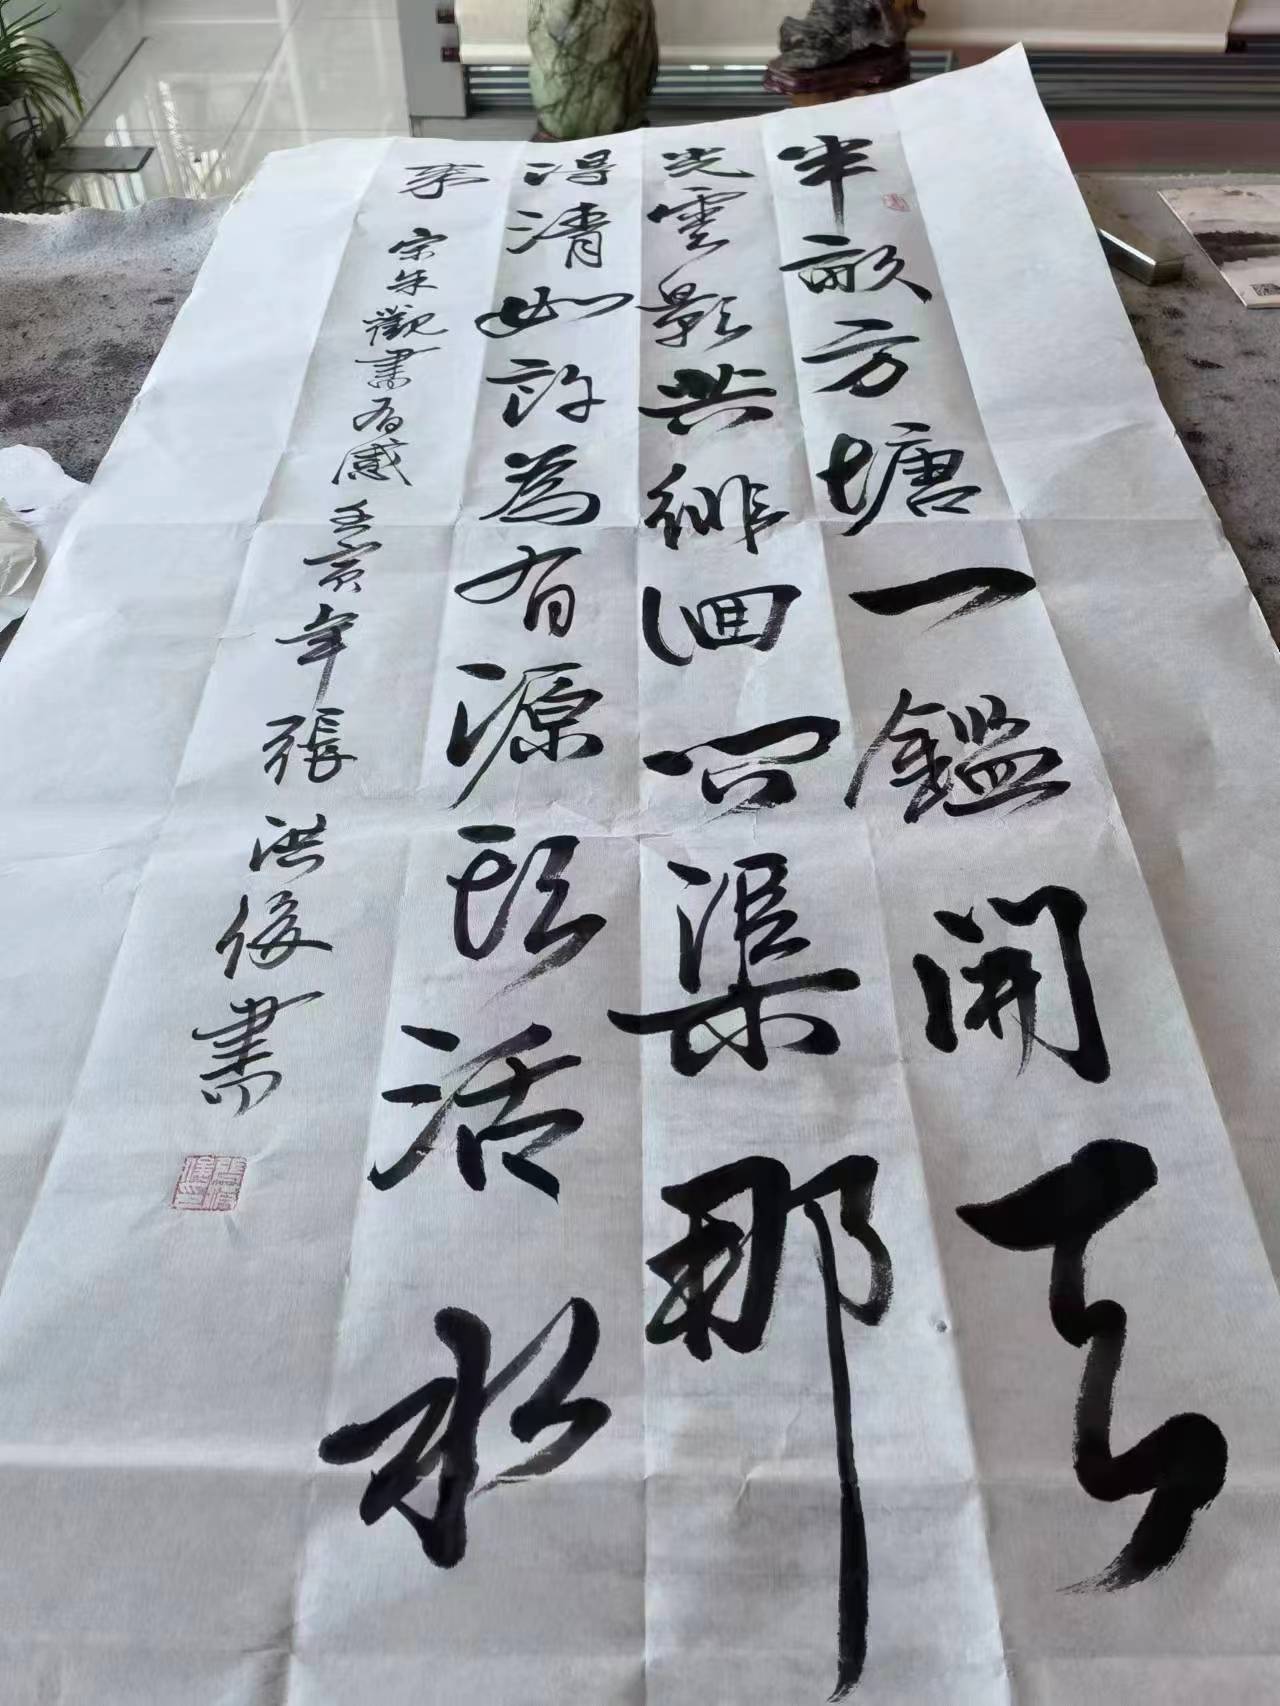 半畝方塘一鑑開天
光雲影共徘徊問渠那
得清如許為有源头活水
来 宋朱觀書有感 壬寅年 張洪俊書